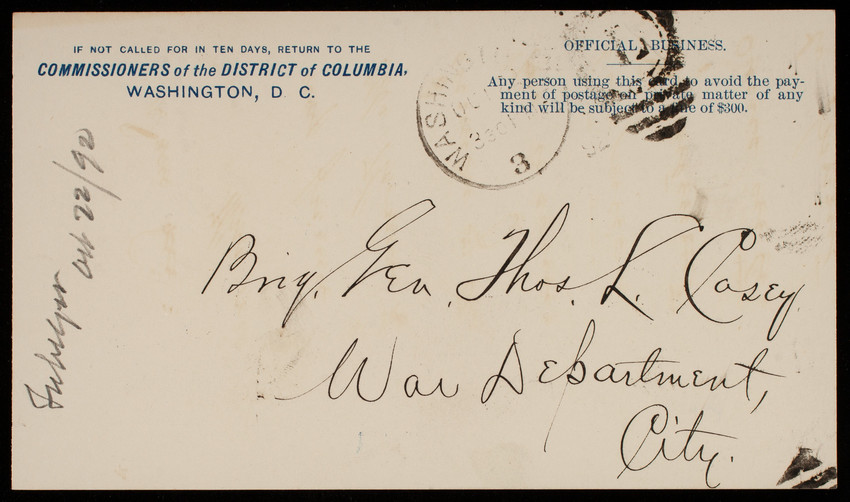 IF NOT CALLED FOR IN TEN DAYS, RETURN TO THE
COMMISSIONERS of the DISTRICT of COLUMBIA,
WASHINGTON, D C.
OFFICIAL BUSINESS.
Any person using this card to avoid the pay-
ment of postage on private matter of any
kind will be subject to a fine of $300.
WASHINGTON
3
92
Oct 22/92
Brig. Gen. Thos. L. Casey
War Department,
City.